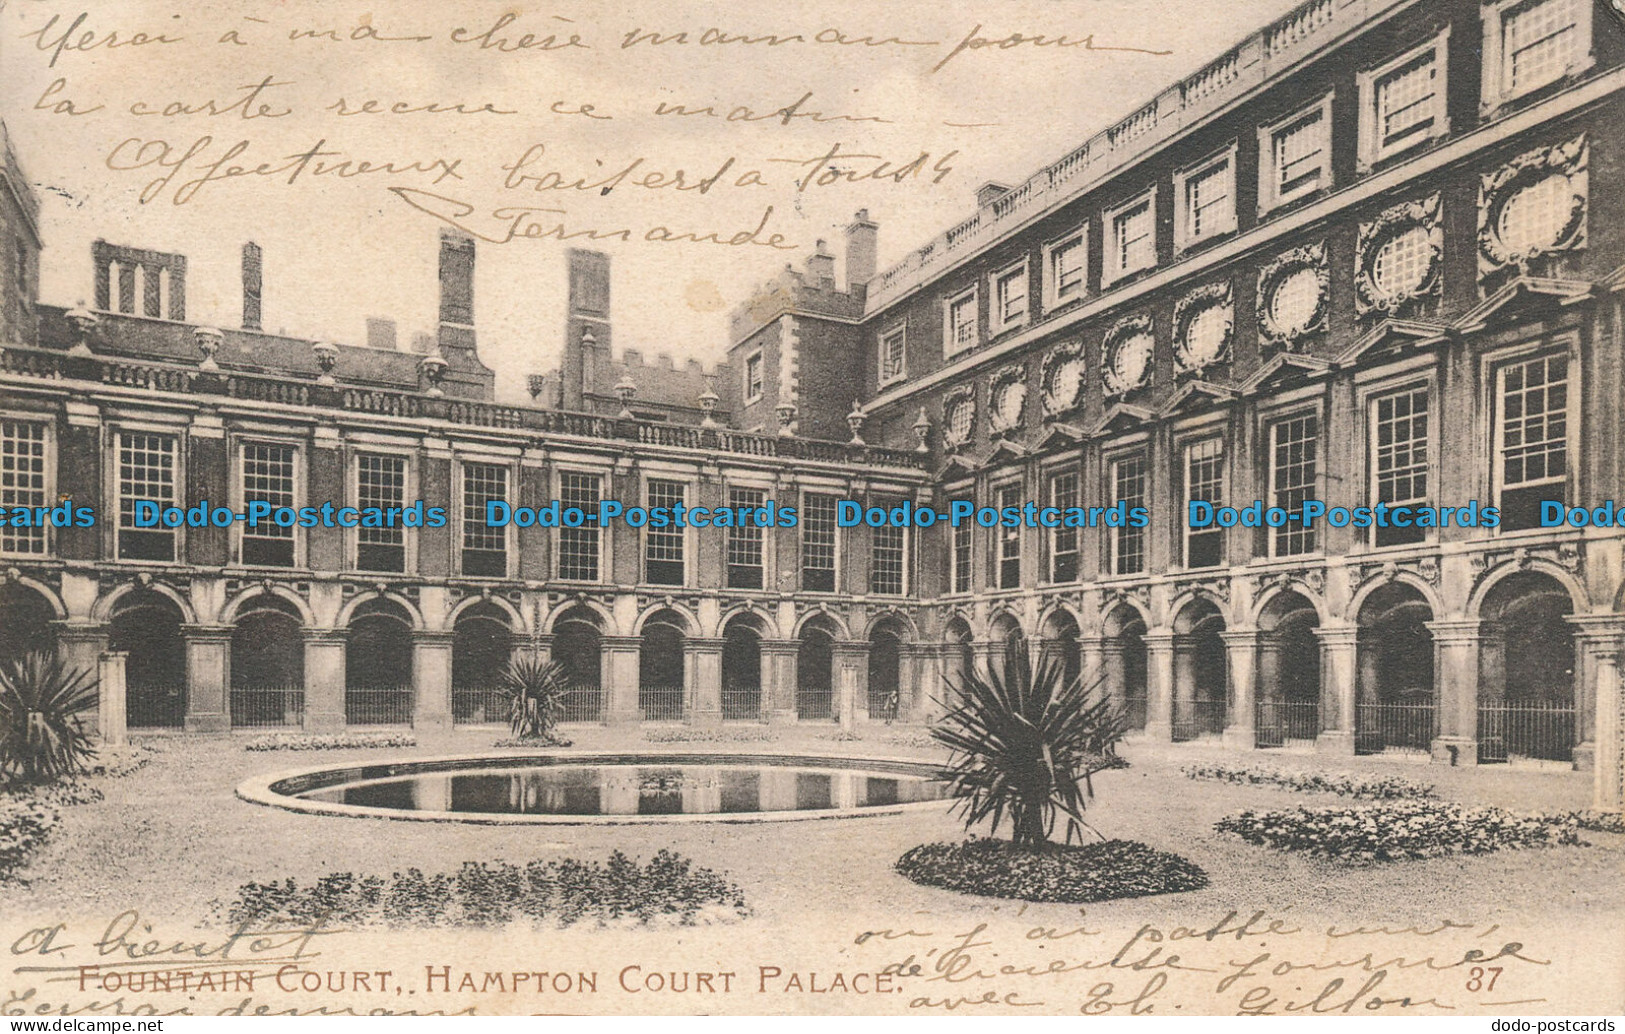 Merci à ma chère maman pour
la carte recue ce matin –
Affectueux baisers à tous 4
Fernande
Dodo-Postcards Dodo-Postcards Dodo-Postcards Dodo-Postcards Dodo-Postcards Dodo
A bientôt
où j'ai passé une
FOUNTAIN COURT, HAMPTON COURT PALACE.
délicieuse journée
37
Ecrirai demain
avec Ch. Gillon –
dodo-postcards.com